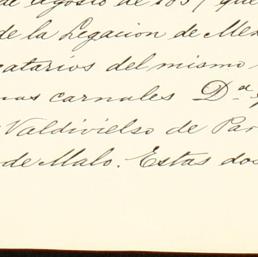 de agosto de 1857 que
de la Legacion de Méx
catarios del mismo
mas carnales Dª
Valdivielso de Par
de Malo. Estas dos